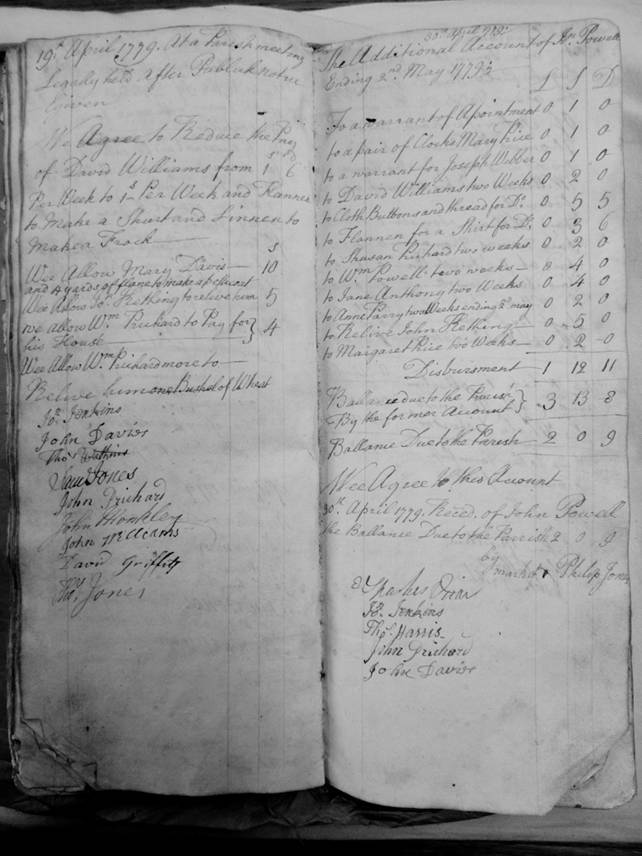 19th April 1779. At a Parish meeting
Legaly held after Publick notice
Given
We Agree to Reduce the Pay
of David Williams from 1s 6
Per Week to 1s- Per Week and Flannen
to Make a Shurt and Linnen to
make a Frock
s
Wee Allow Mary Davis 10
and 4 yards of flane to make
Wee Allow Jo. Kething to relive him 5
we allow Wm Prichard to Pay for
his House } 4
Wee Allow Wm Prichard more to
Relive him one Bushel of Wheat
Jo. Jenkins
John Davies
Thos Watkins
Saml Jones
John Prichard
John
John
David Griffith
Thos Jones
30th April 1779
The Additional Account of Jn Powell
Ending 2nd May 1779
L S D
To a warrant of Apointment 0 1 0
to a pair of Clocks Mary Rice 0 1 0
to a warrant for Joseph Webber 0 1 0
to David Williams two Weeks 0 2 0
to Cloth Buttons and thread for Do 0 5 5
to Flannen for a Shirt for Do 0 3 6
to Shusan Prichard two weeks 0 2 0
to Wm Powell two weeks 0 4 0
to Jane Anthony two Weeks 0 4 0
to Anne Parry two Weeks ending 2d may 0 2 0
to Relive John Kething 0 5 0
to Margaret Rice two Weeks 0 2 0
Disbursment 1 12 11
Ballance due to the Parish
By the former Account } 3 13 8
Ballance Due to the Parish 2 0 9
Wee Agree to this Acount
30th April 1779. Reced. of John Powell
the Ballance Due to the Parish 2 0 9
by
mark Philip Jones
Charles
Jo. Jenkins
Thos Harris
John Prichard
John Davies